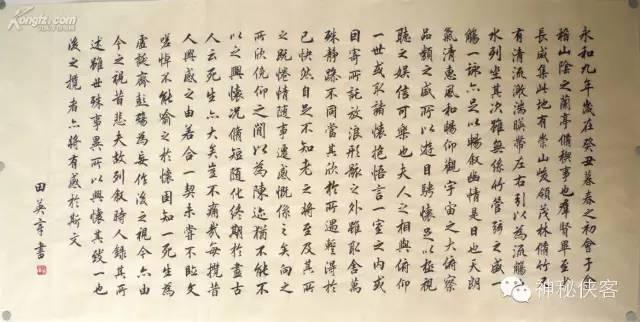 永和九年歲在癸丑暮春之初會于會
稽山陰之蘭亭脩稧事也羣賢畢至少
長咸集此地有崇山峻領茂林脩竹又
有清流激湍暎帶左右引以為流觴曲
水列坐其次雖無絲竹管弦之盛一
觴一詠亦足以暢敘幽情是日也天朗
氣清惠風和暢仰觀宇宙之大俯察
品類之盛所以遊目騁懷足以極視
聽之娛信可樂也夫人之相與俯仰
一世或取諸懷抱悟言一室之內或
因寄所託放浪形骸之外雖取舍萬
殊靜躁不同當其欣於所遇暫得於
己快然自足不知老之將至及其所
之既惓情隨事遷感慨係之矣向之
所欣俛仰之間以為陳迹猶不能不
以之興懷況脩短隨化終期於盡古
人云死生亦大矣豈不痛哉每攬昔
人興感之由若合一契未嘗不臨文
嗟悼不能喻之於懷固知一死生為
虛誕齊彭殤為妄作後之視今亦由
今之視昔悲夫故列敘時人錄其所
述雖世殊事異所以興懷其致一也
後之攬者亦將有感於斯文
田英章書
Kongfz.com
神秘侠客